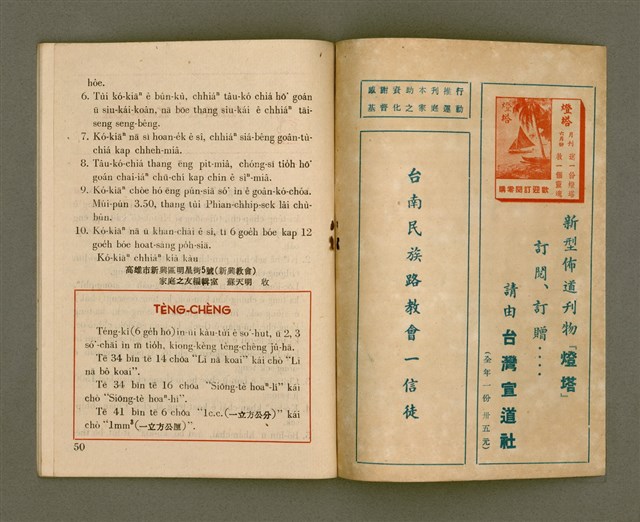 hôe.
6. Túi kó-kiāⁿ ê bún-kù, chhiáⁿ tâu-kó chiá hō͘ goán
ū siu-kái-koân, nā bōe thang siu-kái ê chhiáⁿ tāi-
seng seng-bêng.
7. Kó-kiāⁿ nā sī hoan-e̍k ê sî, chhiáⁿ siá-bêng goân-tù-
chiá kap chheh-miâ.
8. Tâu-kó-chiá thang ēng pit-miâ, chóng-sī tio̍h hō͘
goán chai-iáⁿ chū-chí kap chin ê sìⁿ-miâ.
9. Kó-kiāⁿ chòe hó ēng pún-siā só͘ ìn ê goân-kó-chóa.
Mūi-pún 3.50, thang túi Phian-chhip-sek lâi chú-
bûn.
10. Kó-kiāⁿ nā ū khan-chài ê sî, tī 6 goe̍h bóe kap 12
goe̍h bóe hoat-sàng pó-siâ.
Kó-kiāⁿ chhiáⁿ kià kàu
高雄市新興區明星街5號(新興教會)
家庭之友編輯室 蘇天明 收
TÈNG-CHÈNG
Têng-kî (6 ge̍h hō) in-ūi kàu-tùi ê so͘-hut, ū 2, 3
só͘-chāi ìn m̄ tio̍h, kiong-kèng tèng-chèng jû-hā.
Tē 34 bīn tē 14 chōa "Lī nā koai" kái chò "Lī
nā bô koai".
Tē 34 bīn tē 16 chōa "Siōng-tè hoaⁿ-lī" kái
chò "Siōng-tè hoaⁿ-hí".
Tē 41 bīn tē 6 chōa "1c.c.(一立方公分)" kái
chò "1mm³(一立方公厘)".
50
感謝資助本刊推行
基督化之家庭運動
台南民族路教會一信徒
燈塔
燈塔
月刊
訂一份燈塔
救一個靈魂
歡迎訂閱零購
新型佈道刊物『燈塔』
訂閱、訂贈‥‥
請由台灣宣道社
(全年一份卅五元)